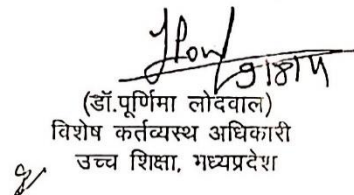 (डॉ.पूर्णिमा लोदवाल)
विशेष कर्तव्यस्थ अधिकारी
उच्च शिक्षा, मध्यप्रदेश